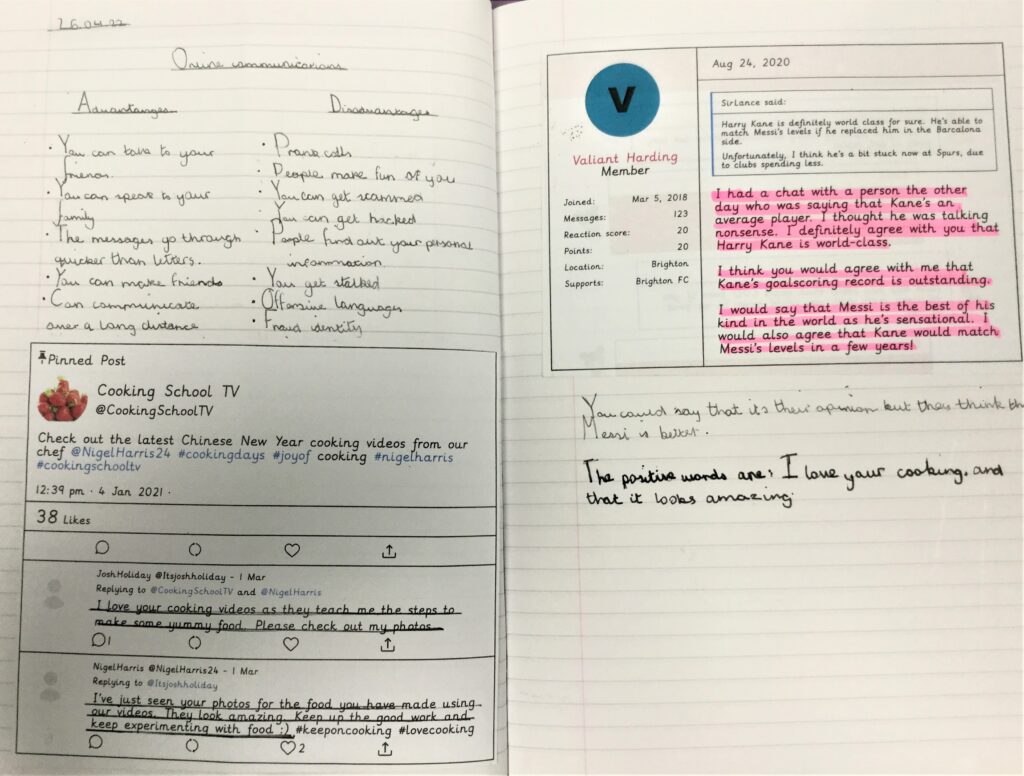 26.04.22
Online communications
Advantages
• You can take to your
friends.
• You can speak to your
family
• The messages go through
quicker than letters.
• You can make friends
• Can communicate
over a long distance
Disadvantages
• Prank calls
• People make fun of you
• You can get scammed
• You can get hacked
• People find out your personal
information
• You get stalked
• Offensive languages
• Fraud identity
Pinned Post
Cooking School TV
@CookingSchoolTV
Check out the latest Chinese New Year cooking videos from our
chef @NigelHarris24 #cookingdays #joyof cooking #nigelharris
#cookingschooltv
12:39 pm · 4 Jan 2021 ·
38 Likes
JoshHoliday @Itsjoshholiday - 1 Mar
Replying to @CookingSchoolTV and @NigelHarris
I love your cooking videos as they teach me the steps to
make some yummy food. Please check out my photos
1
NigelHarris @NigelHarris24 - 1 Mar
Replying to @Itsjoshholiday
I've just seen your photos for the food you have made using
our videos. They look amazing. Keep up the good work and
keep experimenting with food :) #keeponcooking #lovecooking
2
V
Valiant Harding
Member
Joined: Mar 5, 2018
Messages: 123
Reaction score: 20
Points: 20
Location: Brighton
Supports: Brighton FC
Aug 24, 2020
SirLance said:
Harry Kane is definitely world class for sure. He's able to
match Messi's levels if he replaced him in the Barcalona
side.
Unfortunately, I think he's a bit stuck now at Spurs, due
to clubs spending less.
I had a chat with a person the other
day who was saying that Kane's an
average player. I thought he was talking
nonsense. I definitely agree with you that
Harry Kane is world-class.
I think you would agree with me that
Kane's goalscoring record is outstanding.
I would say that Messi is the best of his
kind in the world as he's sensational. I
would also agree that Kane would match
Messi's levels in a few years!
You could say that it's their opinion but they think
Messi is better.
The positive words are: I love your cooking. and
that it looks amazing